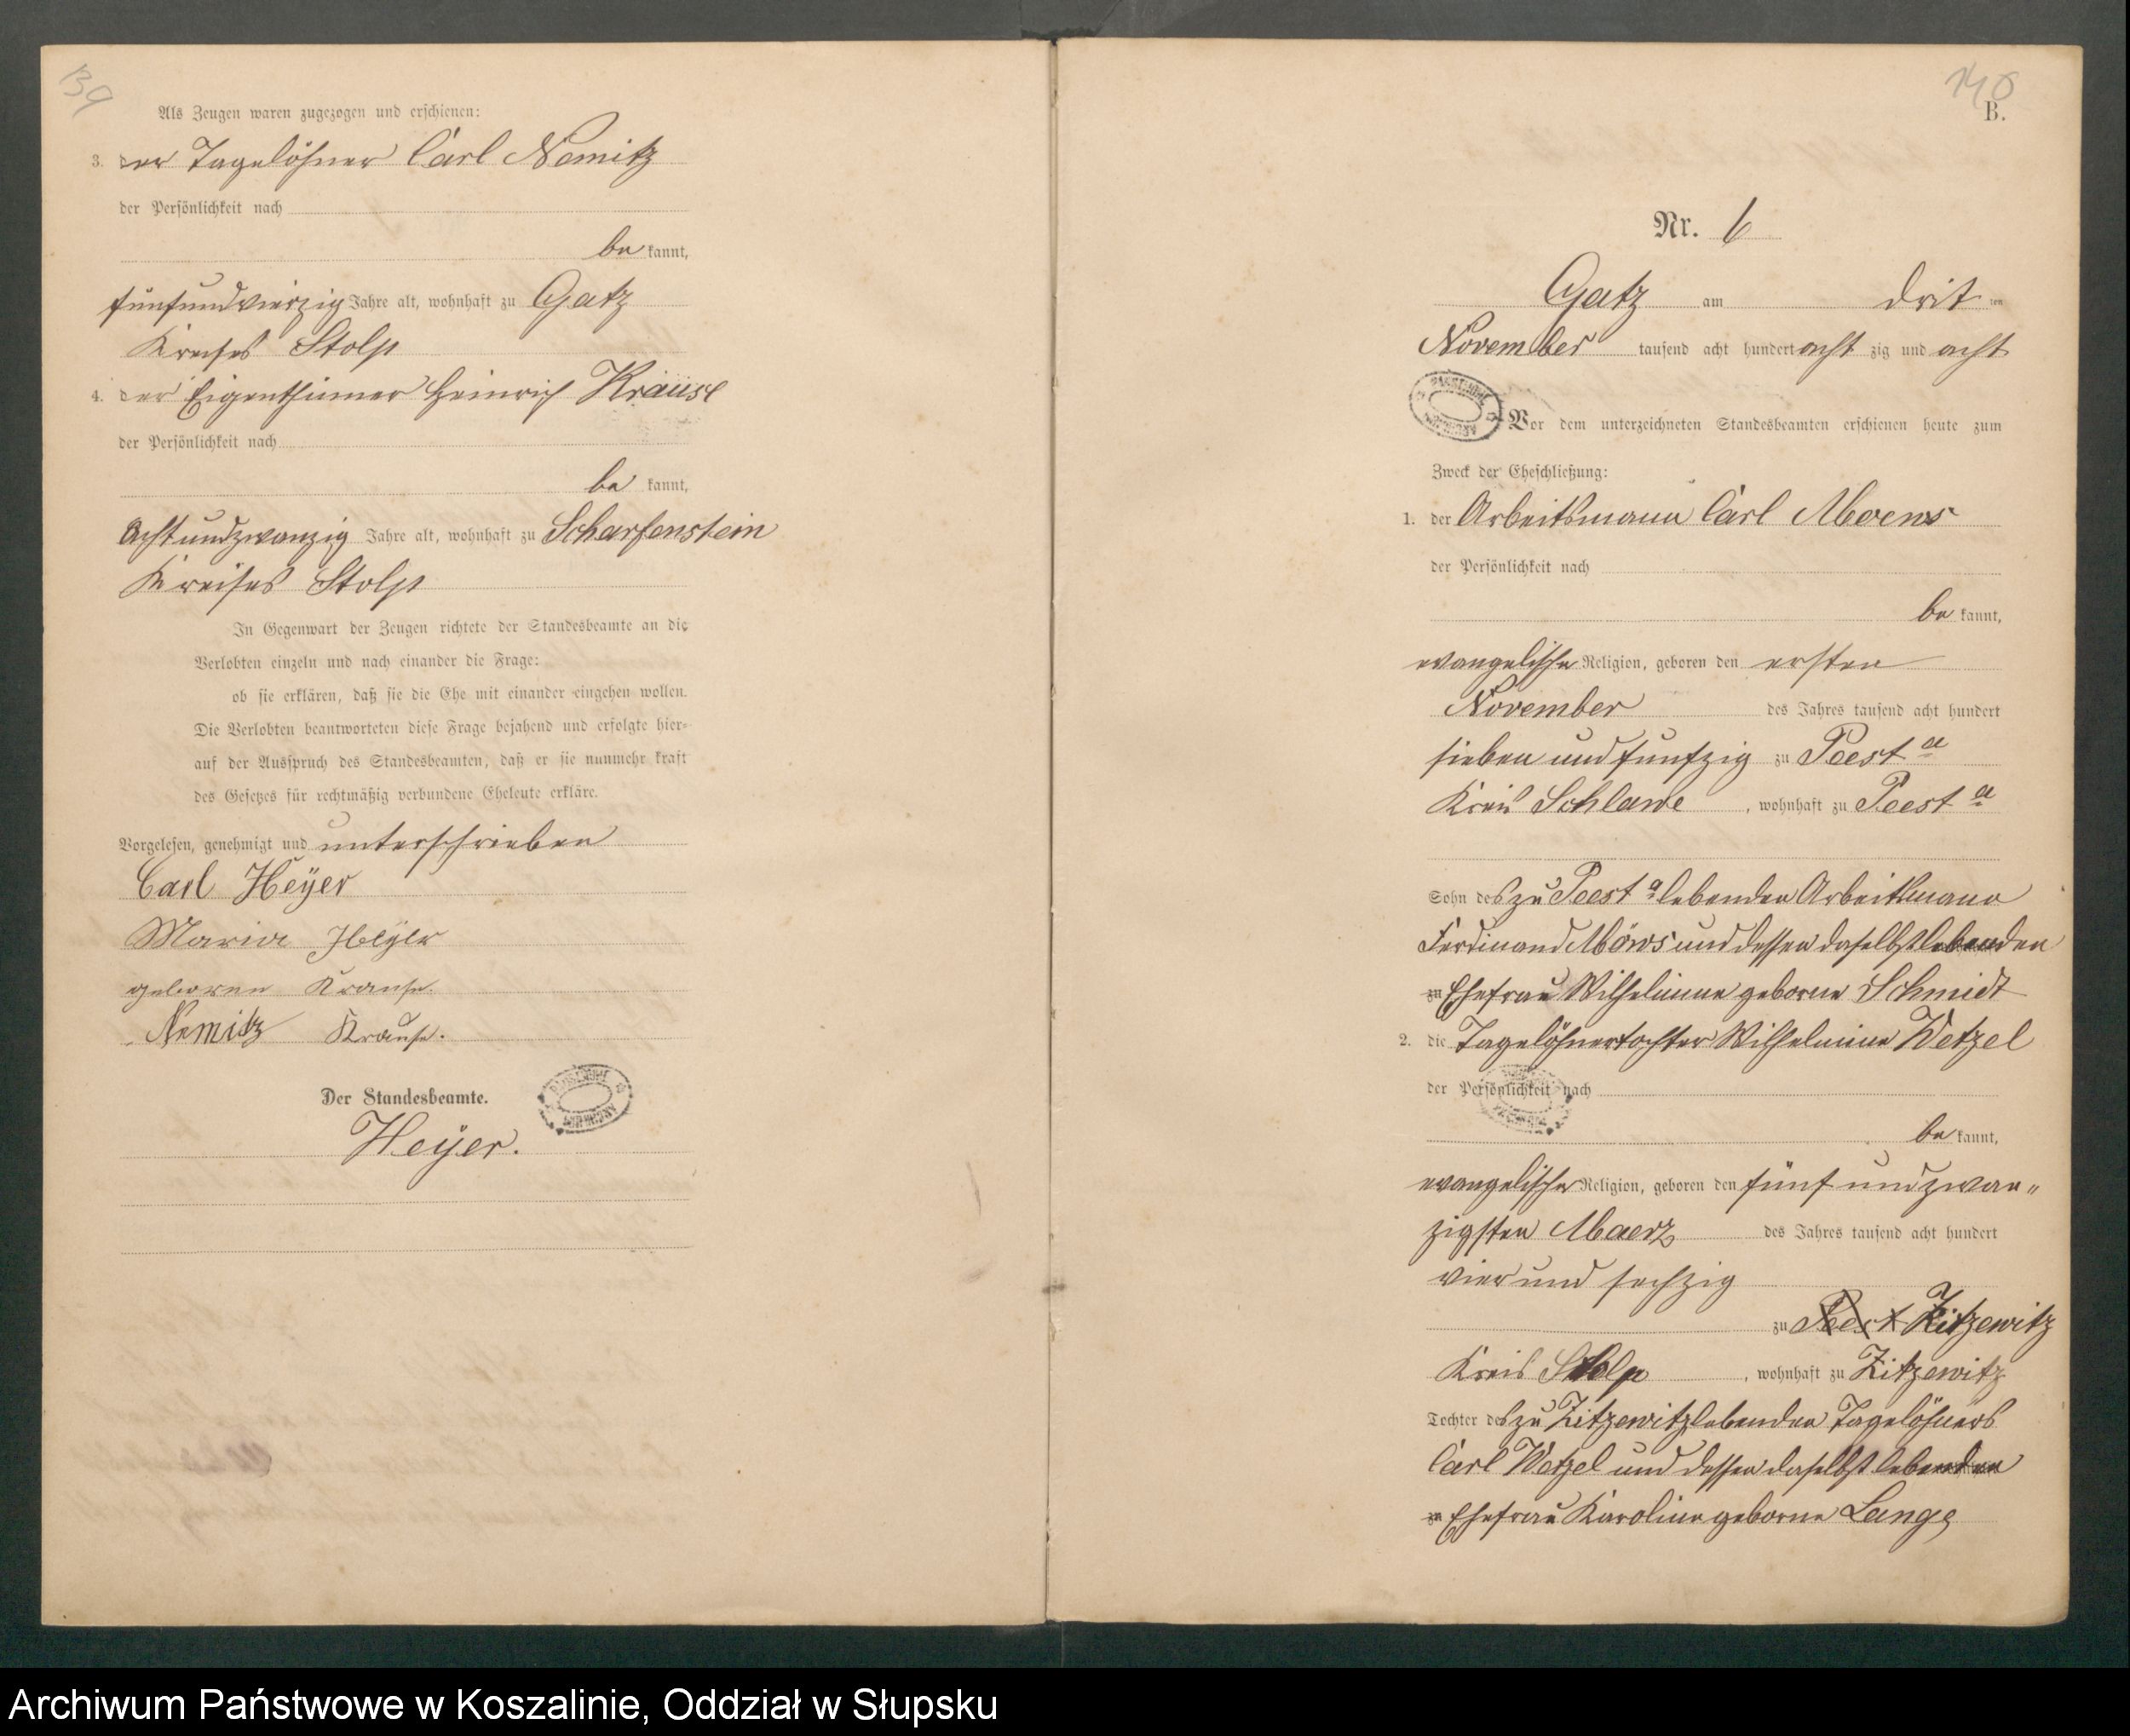 139
Als Zeugen waren zugezogen und erschienen:
3. der Tagelöhner Carl Nemitz
der Persönlichkeit nach
be kannt,
fünfundvierzig Jahre alt, wohnhaft zu Gatz
Kreises Stolp
4. der Eigenthümer Heinrich Krause
der Persönlichkeit nach
be kannt,
achtundzwanzig Jahre alt, wohnhaft zu Scharfenstein
Kreises Stolp
In Gegenwart der Zeugen richtete der Standesbeamte an die
Verlobten einzeln und nach einander die Frage:
ob sie erklären, daß sie die Ehe mit einander eingehen wollen.
Die Verlobten beantworteten diese Frage bejahend und erfolgte hier-
auf der Ausspruch des Standesbeamten, daß er sie nunmehr kraft
des Gesetzes für rechtmäßig verbundene Eheleute erkläre.
Vorgelesen, genehmigt und unterschrieben
Carl Heÿer
Maria Heÿer
geborene Krause.
Nemitz Krause.
Der Standesbeamte.
Heÿer.
140
B.
Nr. 6
Gatz am drit ten
November tausend acht hundert acht zig und acht
Vor dem unterzeichneten Standesbeamten erschienen heute zum
Zweck der Eheschließung:
1. der Arbeitsmann Carl Moews
der Persönlichkeit nach
be kannt,
evangelischer Religion, geboren den ersten
November des Jahres tausend acht hundert
sieben und fünfzig zu Peest a
Kreis Schlawe, wohnhaft zu Peest a
Sohn des zu Peest a lebenden Arbeitsmann
Ferdinand Möws und dessen daselbst lebenden
zu Ehefrau Wilhelmine geborne Schmidt
2. die Tagelöhnertochter Wilhelmine Wetzel
der Persönlichkeit nach
be kannt,
evangelischer Religion, geboren den fünf und zwan„
zigsten Maerz des Jahres tausend acht hundert
vier und sechzig
zu Peest Zitzewitz
Kreis Stolp, wohnhaft zu Zitzewitz
Tochter des zu Zitzewitz lebenden Tagelöhners
Carl Wetzel und dessen daselbst lebenden
zu Ehefrau Karoline geborne Lange
Archiwum Państwowe w Koszalinie, Oddział w Słupsku